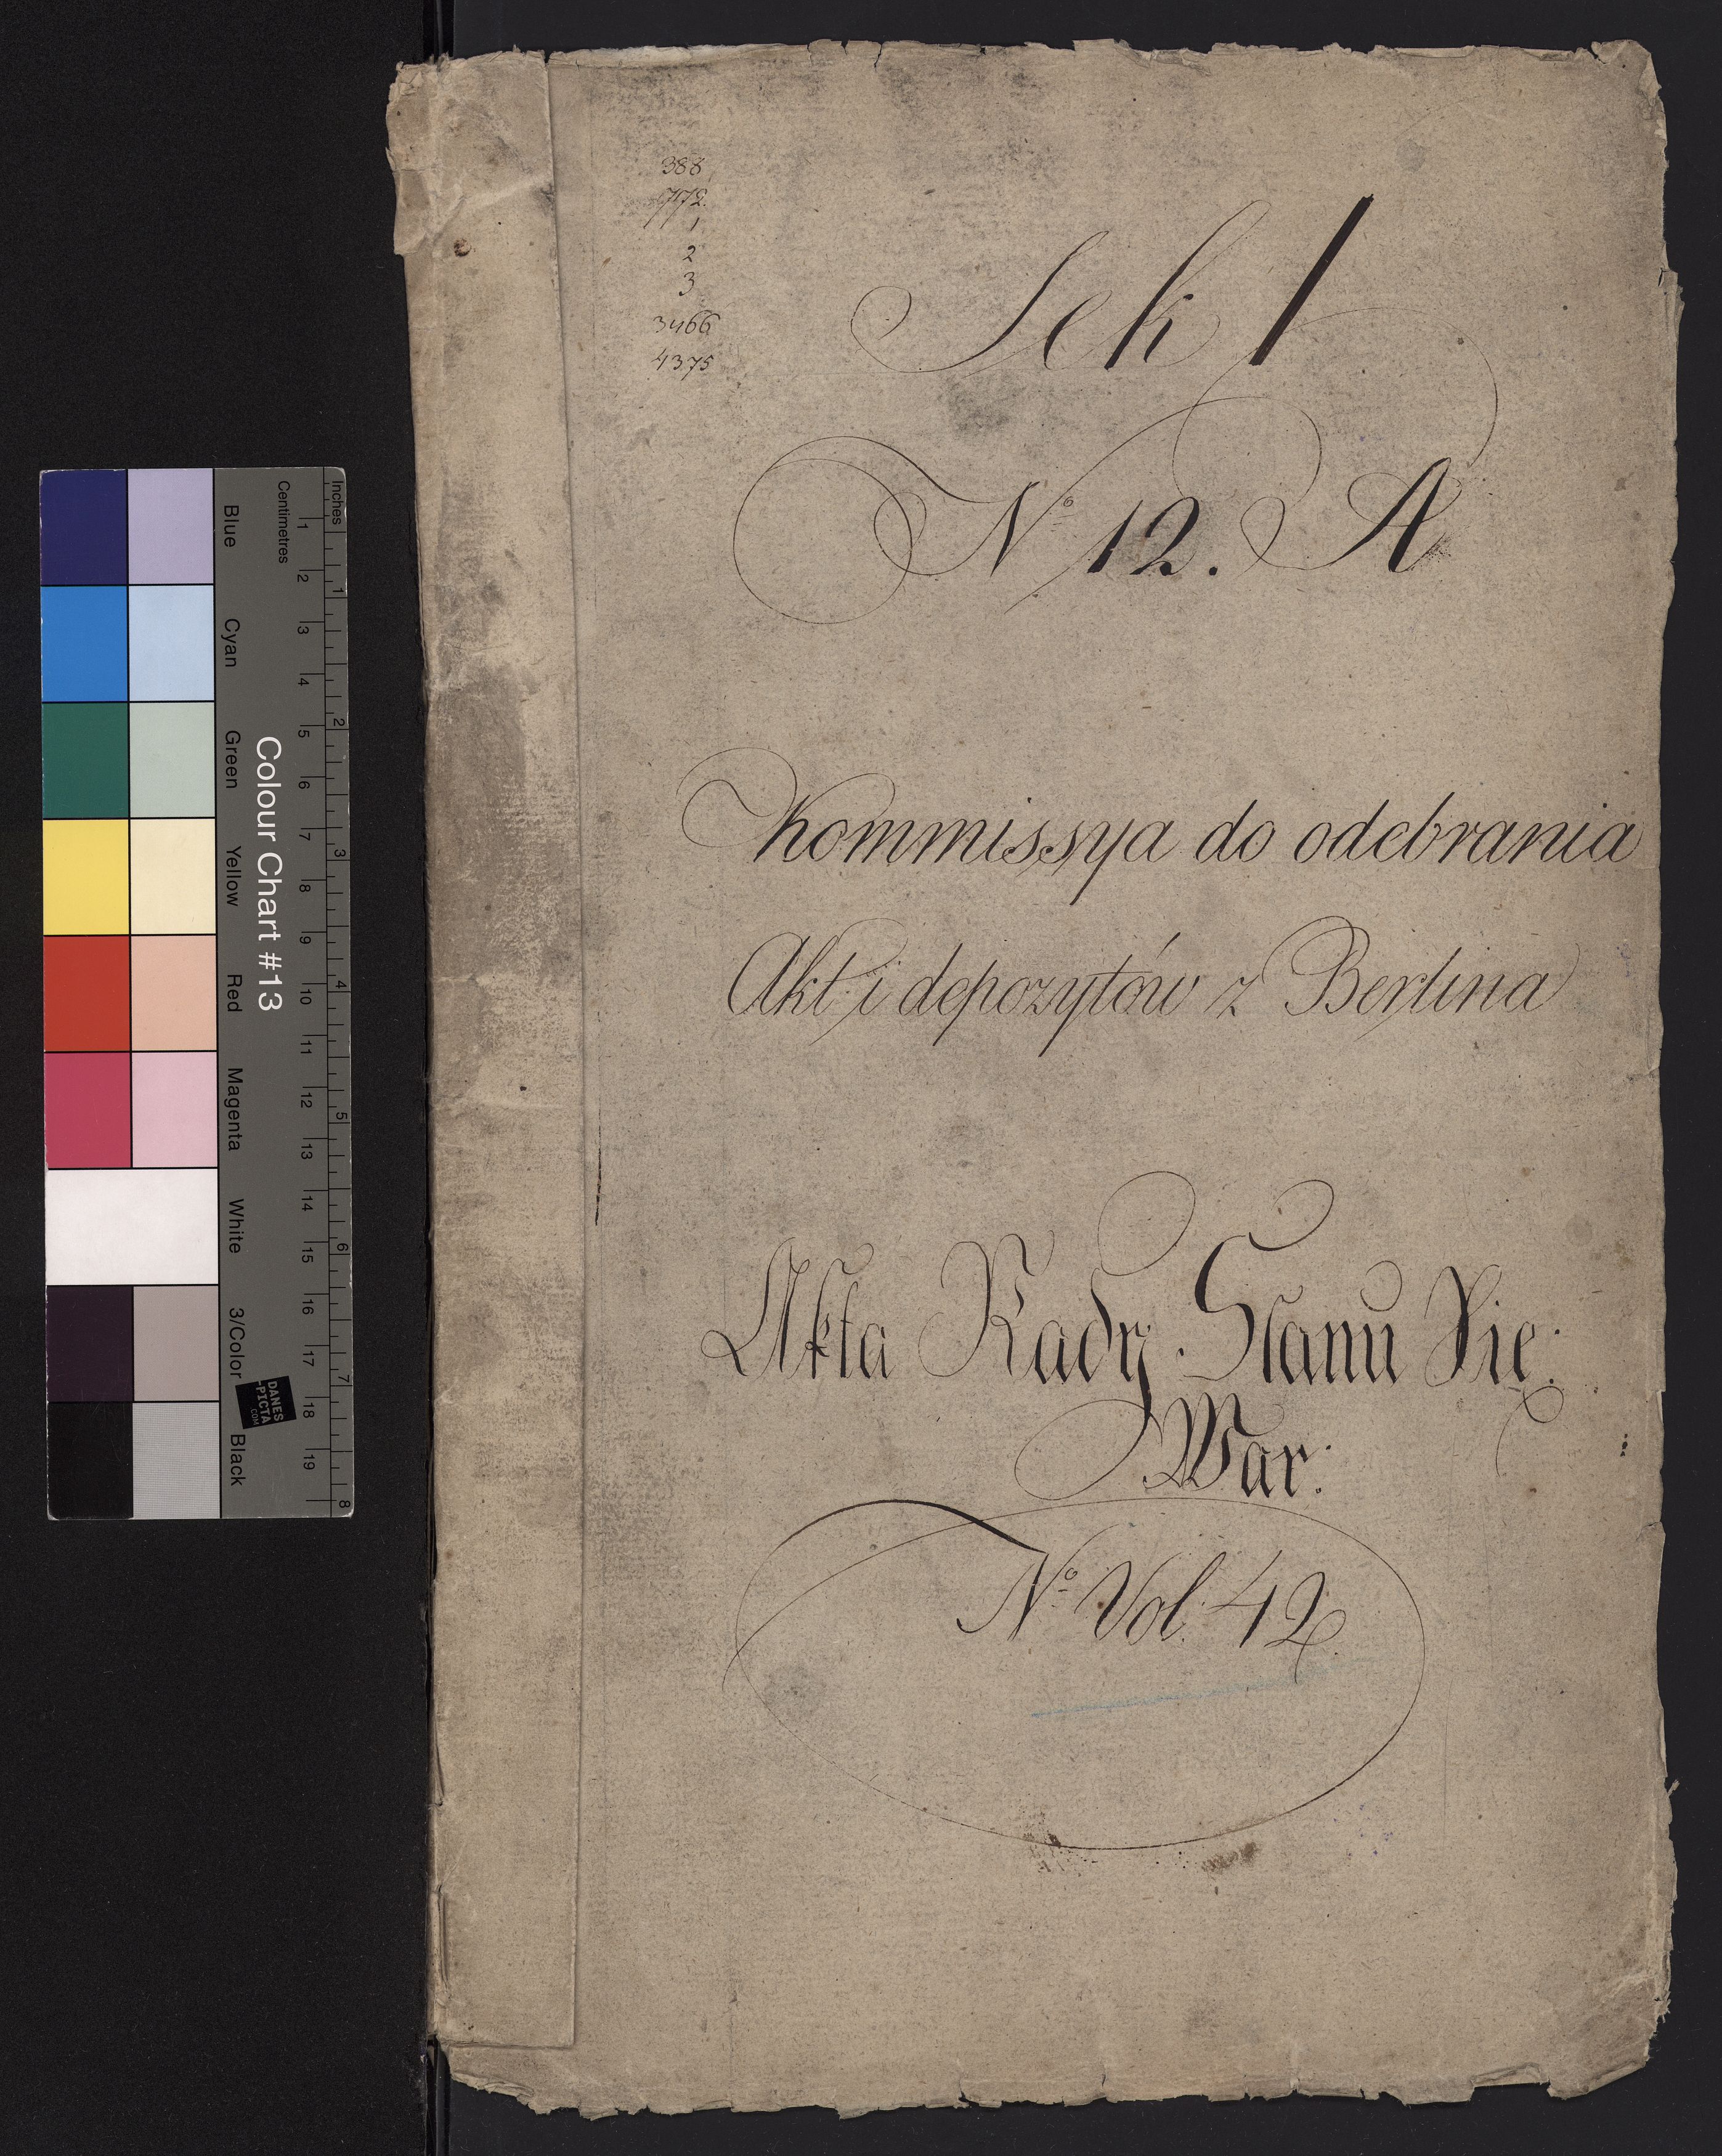 388
772
1
2
3
3466
4375
Sek 1
No 12. A
Kommissya do odebrania
Akt i depozytów z Berlina
Akta Rady Stanu Xię:
War:
No Vol. 42
Inches
Centimetres
1 2 3 4 5 6 7 8
1 2 3 4 5 6 7 8 9 10 11 12 13 14 15 16 17 18 19
Colour Chart #13
Blue Cyan Green Yellow Red Magenta White 3/Color Black
DANES
PICTA
.COM